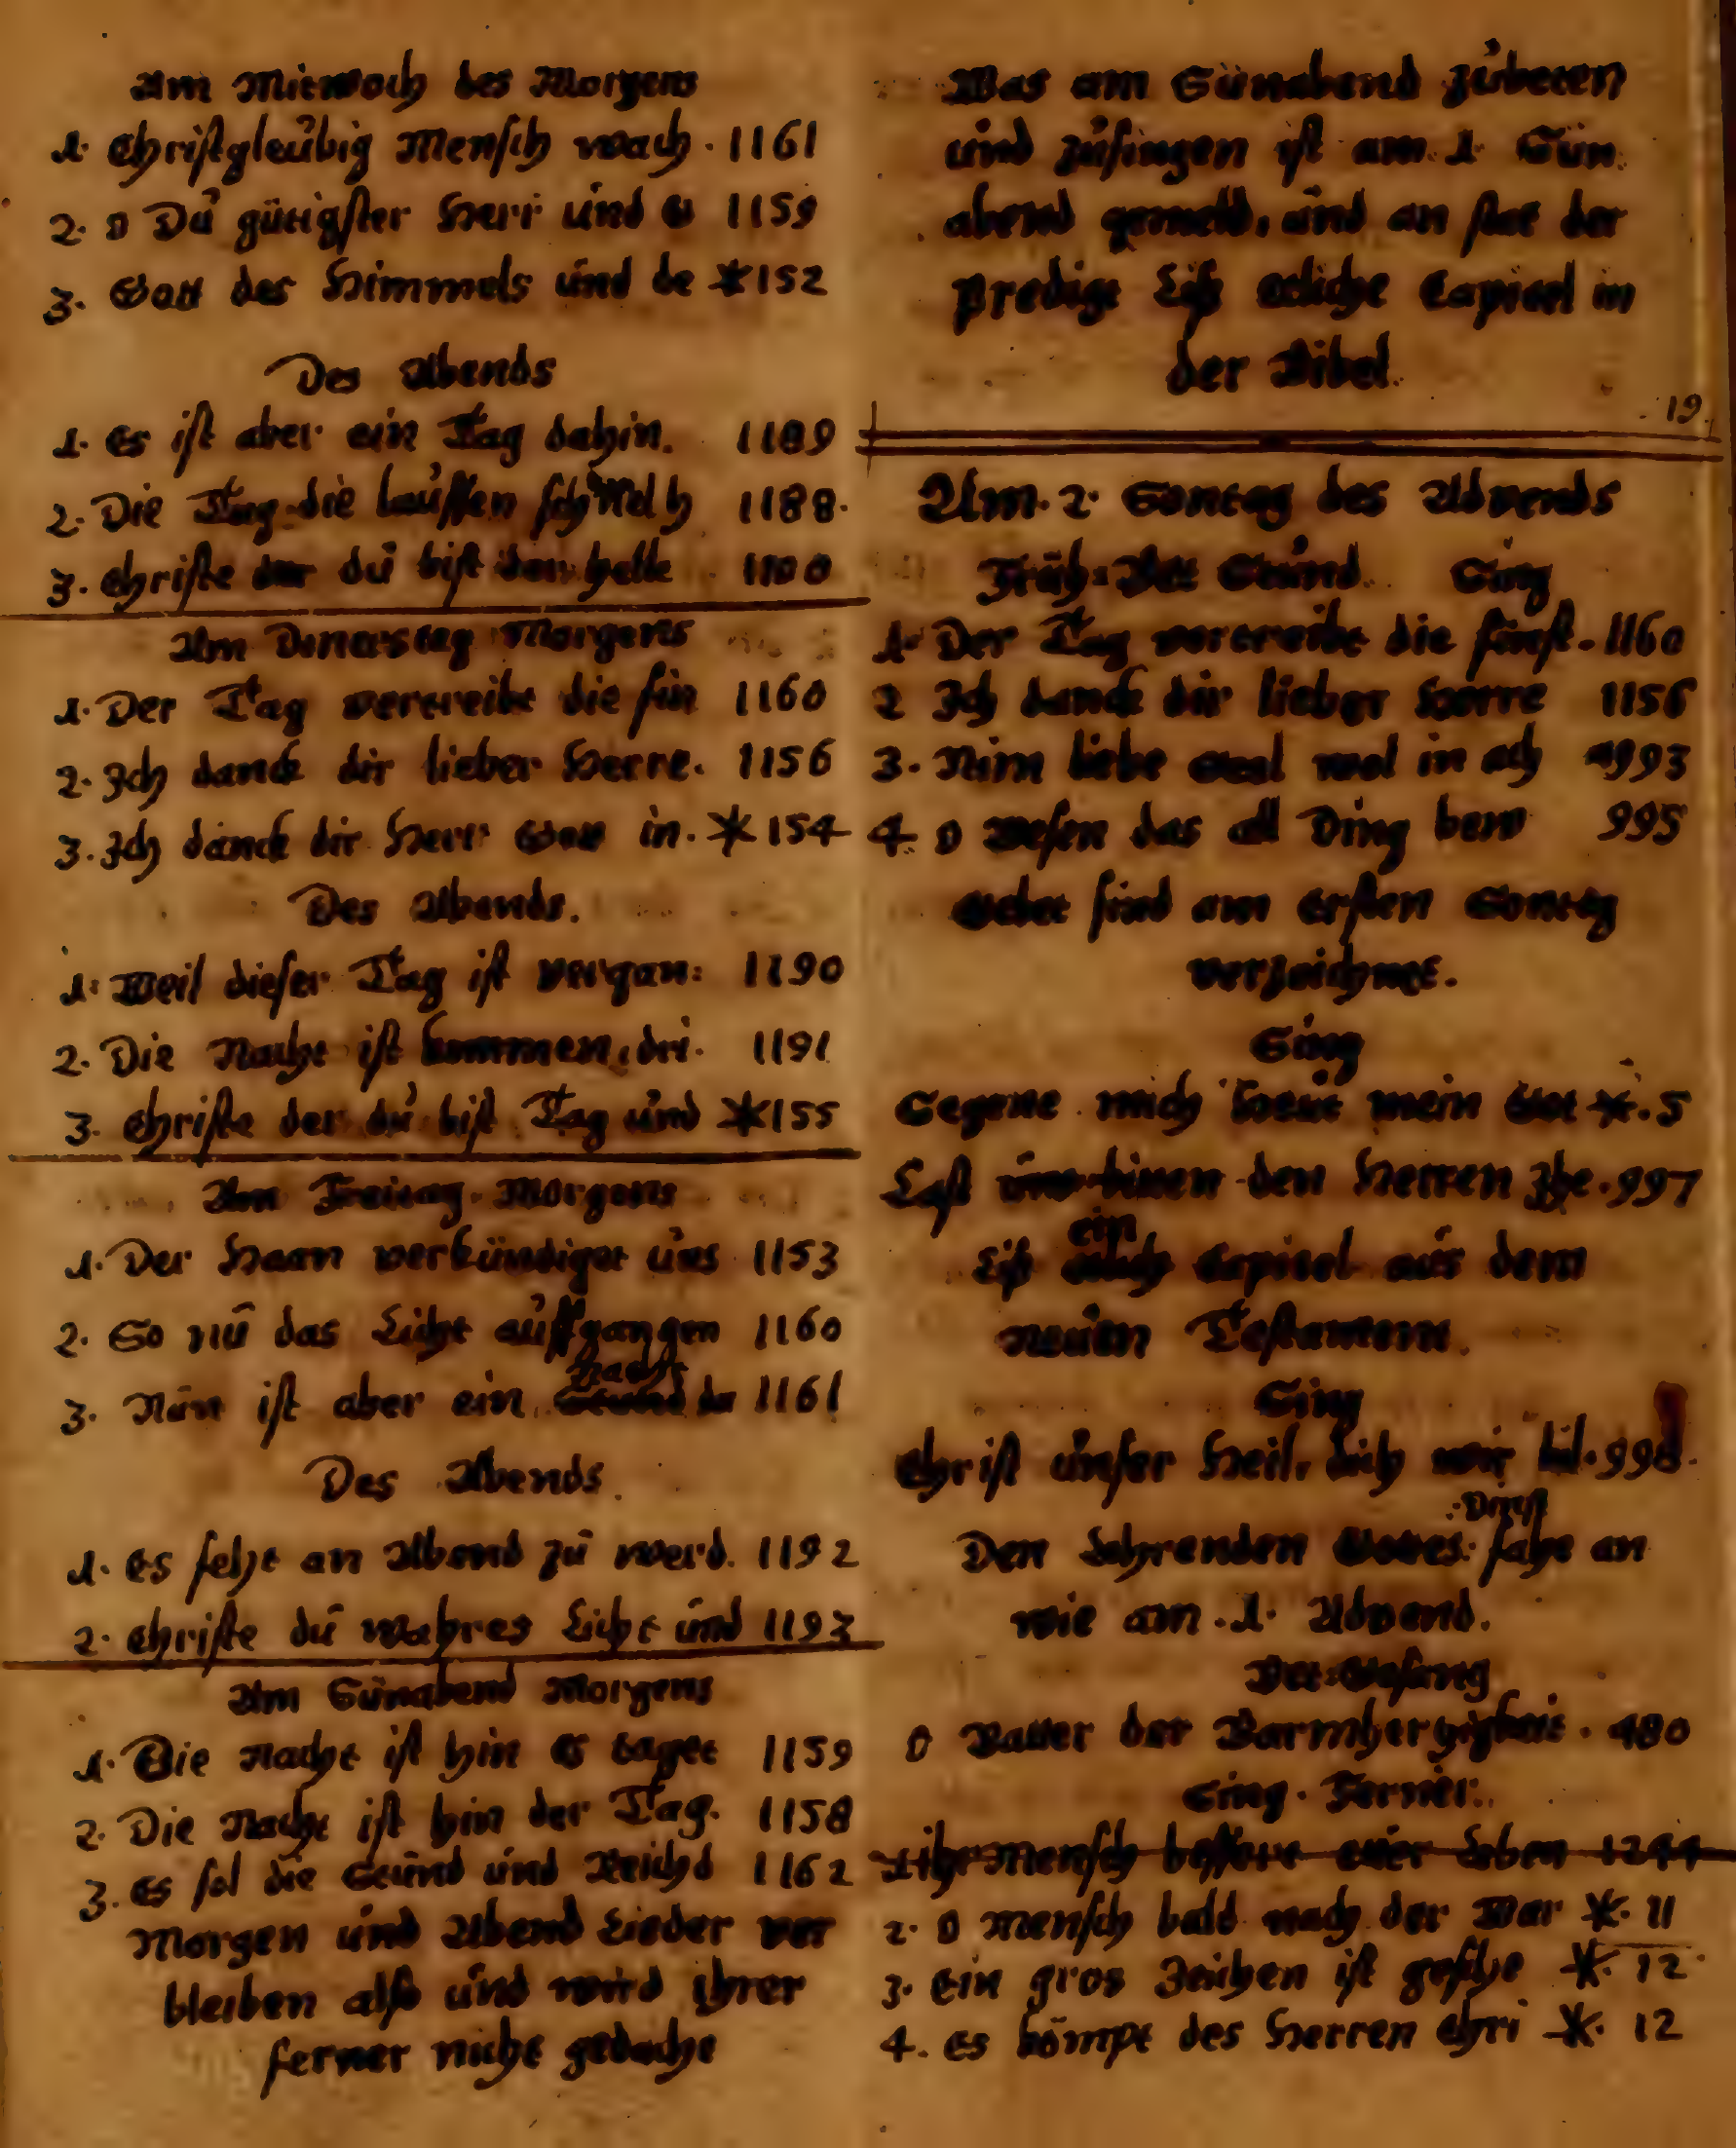 Am Mitwoch des Morgens
1. Christgleübig Mensch wach. 1161
2. O Dü gütigster Herr ünd G 1159
3. Gott des Himmels ünd de *152
Des Abends
1. Es ist aber ein Tag dahin. 1189
2. Die Tag die laüffen schnell h 1188.
3. Christe dü bist den helle
Am Donerstag Morgens
1. Der Tag vertreibt die fin 1160
2. Ich danck dir lieber Herre. 1156
3. Ich danck dir Herr Gott in. *154
Des Abends.
1. Weil dieser Tag ist vergan: 1190
2. Die Nacht ist kommen, dri. 1191
3. Christe der dü bist Tag ünd *155
Am Freitag Morgens
1. Der Haan verkündiget üns 1153
2. So nü das Licht aüffgangen 1160
3. Nün ist aber ein Nacht da 1161
Des Abends.
1. Es seht an Abend zü werd. 1192
2. Christe dü wahres Licht ünd 1193
Am Sünabend Morgens
1. Die Nacht ist hin Es taget 1159
2. Die Nacht ist hin der Tag. 1158
3. Es sol die Stünd ünd Reichd 1162
Morgen ünd Abend Lieder ver
bleiben also ünd wird ihrer
ferner nicht gedacht
Was am Sünabend zübeten
ünd züsingen ist am 1. Sün
abend gemeld, ünd an stat der
Predigt Liß etliche Capitel in
der Bibel.
19.
Am. 2. Sontag des Advends
Früh=Bet Stünd. Sing
1. Der Tag vertreibt die finst. 1160
2 Ich danck dir lieber Herre 1156
3. Nim liebe Seel wol in ach 993
4. O Wesen das all Ding bew 995
Gebet sind am Ersten Sontag
verzeichnet.
Sing
Segene mich Heüt mein Got *. 5
Last üns bitten den Herren Jhe. 997
Liß ein Capitel aüs dem
Neüen Testament.
Sing
Christ ünser Heil, dich wir bit. 998.
Den Lehrenden Gottes: Dinst fahe an
wie am. 1. Advend.
Bet=Gesang
O Vatter der Barmhertzigkeit. 480
Sing. Ferner:
1 ihr Mensch bessert eüer Leben 1244
2. O Mensch bald nach der War *. 11
3. Ein gros Zeichen ist gesche *. 12.
4. Es kömpt des Herren Chri *. 12